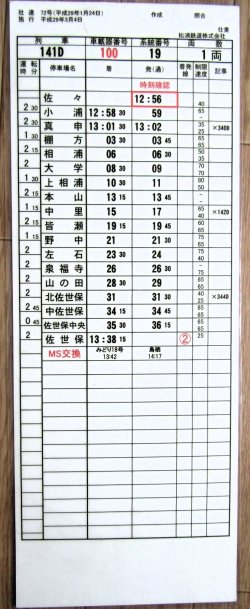 社達 72号(平成29年1月24日) 作成 照合
施行 平成29年3月4日 松浦鉄道株式会社
仕業
列車 車載器番号 系統番号 両数
141D 100 19 1両
運転時分 停車場名 着 発(通) 着発線 制限速度 記事
時刻確認
佐々 12:56
2 30 小浦 12:58 30 59 40
2 真申 13:01 13:01 30 ×3400
1 30 棚方 03 03 45
2 15 相浦 06 06 30
2 大学 08 30 09
1 30 上相浦 10 30 11
2 15 本山 13 15 13 45
1 15 中里 15 17 ×1420
2 15 皆瀬 19 15 19 45
1 15 野中 21 21 30
2 左石 23 30 24
2 泉福寺 26 26 30
2 山の田 28 30 29
2 北佐世保 31 31 30 ×3440
2 45 中佐世保 34 15 34 45
0 45 佐世保中央 35 30 36 15
2 佐世保 13:38 15 ② 25
MS交換 みどり16号 鳥栖
13:42 14:17